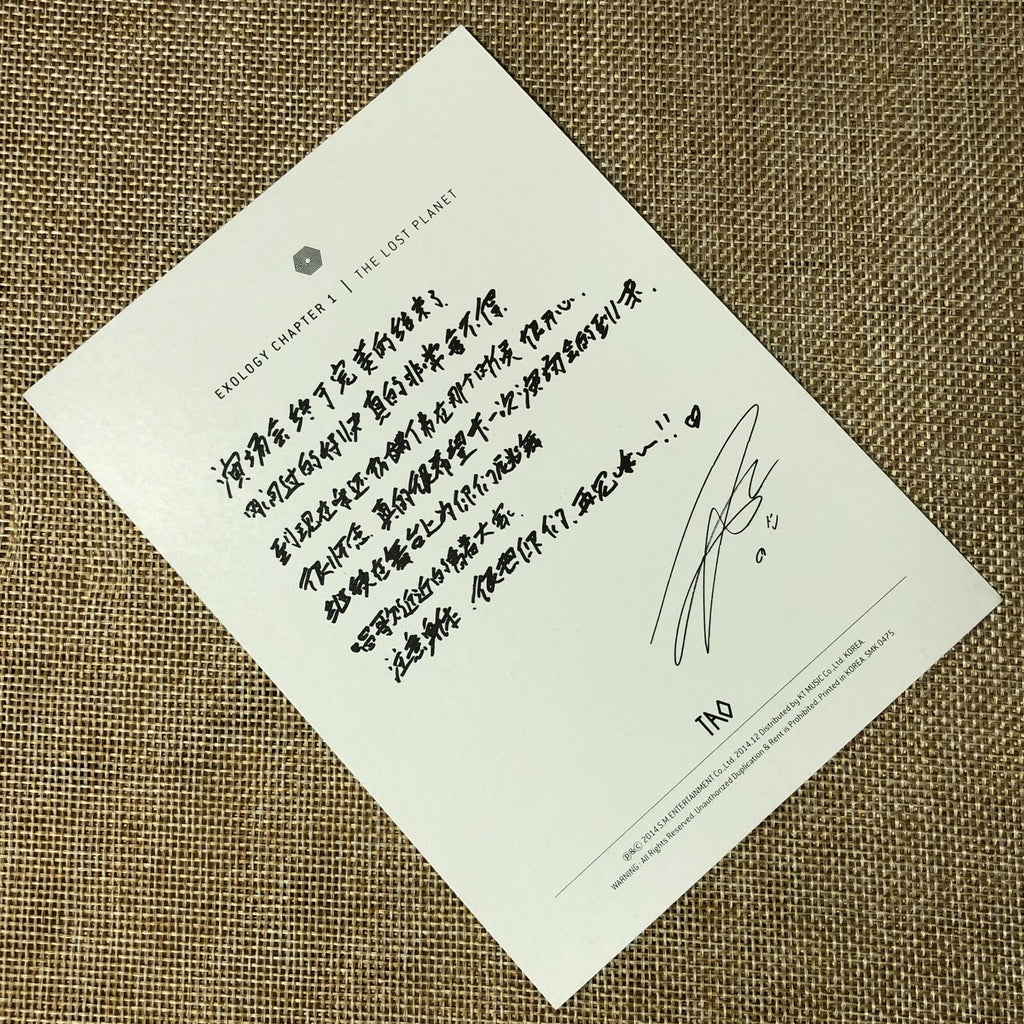 EXOLOGY CHAPTER 1 | THE LOST PLANET
演场会终于完美的结束了
时间过的好快 真的非常舍不得
到现在我还有错觉在那个时候 很开心.
很怀念. 真的很希望下一次演场会的到来.
继续在舞台上为你们
唱歌 近近的 大家.
注意身体. 很想你们. 再见咪~!! ♥
TAO
℗&© 2014 S.M.ENTERTAINMENT Co.,Ltd. 2014.12 Distributed by KT MUSIC Co.,Ltd. KOREA.
WARNING : All Rights Reserved. Unauthorized Duplication & Rent is Prohibited. Printed in KOREA. SMK 0475